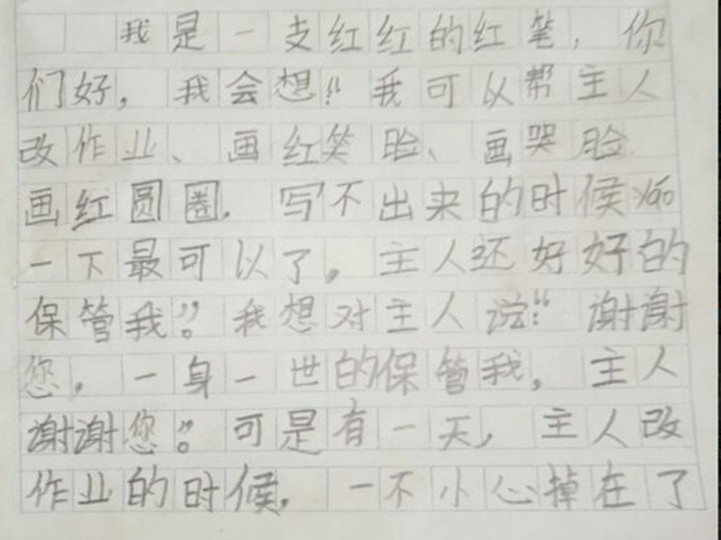 我是一支红红的红笔，你
们好，我会想“我可以帮主人
改作业、画红笑脸、画哭脸
画红圆圈。写不出来的时候
一下最可以了。主人还好好的
保管我”。我想对主人说：“谢谢
您。一身一世的保管我，主人
谢谢您”。可是有一天，主人改
作业的时候，一不小心掉在了